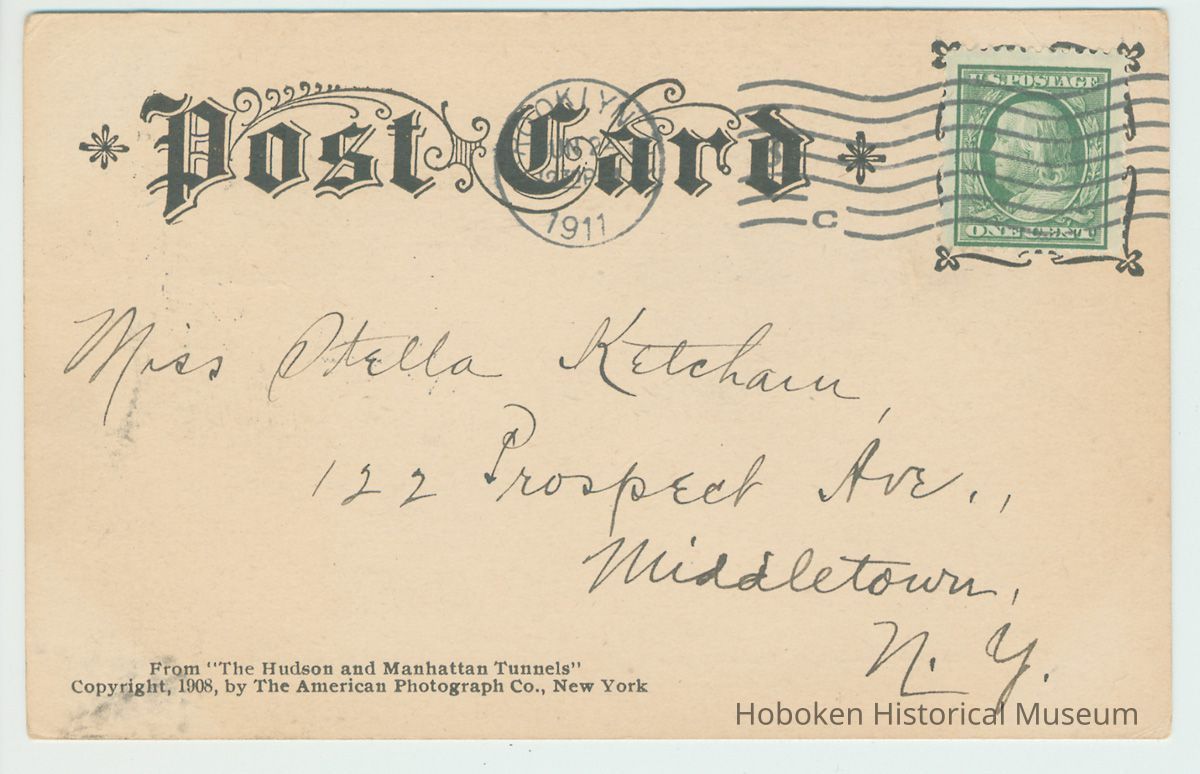 Post Card
BROOKLYN
1911
C
U.S.POSTAGE
ONE CENT
Miss Stella Ketcham,
122 Prospect Ave.,
Middletown,
N. Y.
From "The Hudson and Manhattan Tunnels"
Copyright, 1908, by The American Photograph Co., New York
Hoboken Historical Museum